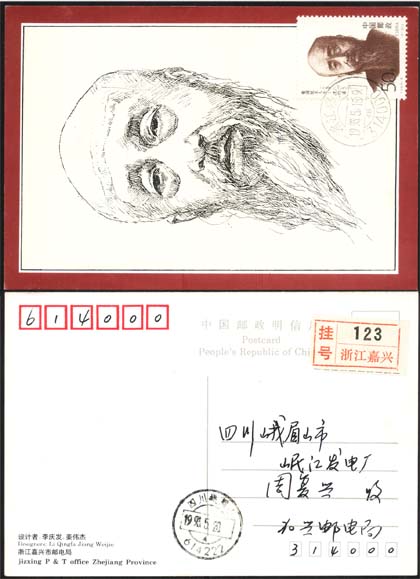 中国邮政
50
614000
中国邮政明信片
Postcard
People's Republic of Chi
挂号
123
浙江嘉兴
四川峨眉山市
岷江发电厂
周复兴 收
四川峨眉
1993.5.20
614222
设计者 李庆发、姜伟杰
Designer: Li Qingfa Jiang Weijie
浙江嘉兴市邮电局
jixing P & T office Zhejiang Province
314000